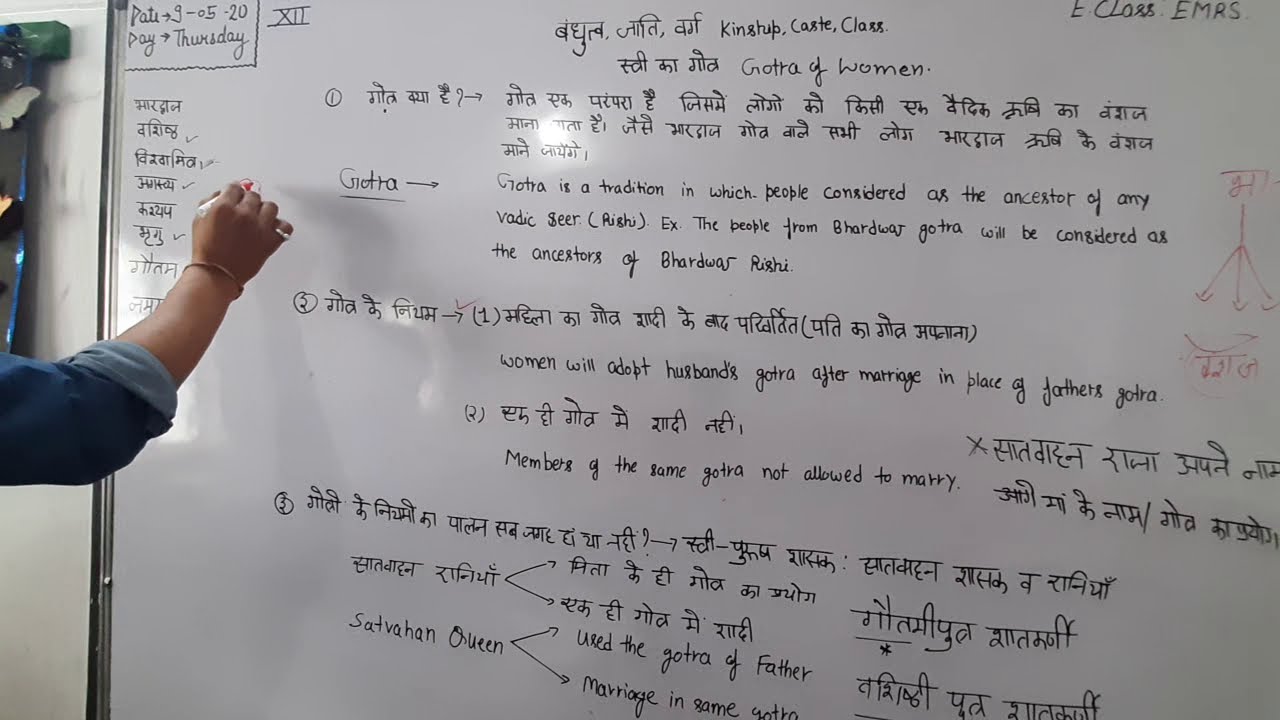 Date → 9-05-20
Day → Thursday
XII
E. Class: EMRS.
बंधुत्व, जाति, वर्ग Kinship, Caste, Class.
स्त्री का गोत्र Gotra of Women.
भारद्वाज
वशिष्ठ
विश्वामित्र
अगस्त्य
कश्यप
भृगु
गौतम
① गोत्र क्या है? → गोत्र एक परंपरा है जिसमें लोगो को किसी एक वैदिक ऋषि का वंशज
माना जाता है। जैसे भारद्वाज गोत्र वाले सभी लोग भारद्वाज ऋषि के वंशज
माने जायेंगे।
Gotra → Gotra is a tradition in which people considered as the ancestor of any
vadic seer. (Rishi). Ex. The people from Bhardwaj gotra will be considered as
the ancestors of Bhardwaj Rishi.
वंशज
② गोत्र के नियम → (1) महिला का गोत्र शादी के बाद परिवर्तित (पति का गोत्र अपनाना)
women will adopt husband's gotra after marriage in place of fathers gotra.
(२) एक ही गोत्र मे शादी नहीं।
Members of the same gotra not allowed to marry.
× सातवाहन राजा अपने नाम
आगे मां के नाम/ गोत्र का प्रयोग
③ गोत्रो के नियमो का पालन सब जगह हां या नहीं? → स्त्री-पुरुष शासक: सातवाहन शासक व रानियाँ
सातवाहन रानियाँ
पिता के ही गोत्र का प्रयोग
एक ही गोत्र में शादी
गौतमीपुत्र शातकर्णी
*
Satvahan Queen
used the gotra of Father
Marriage in same gotra
वशिष्ठी पुत्र शातकर्णी